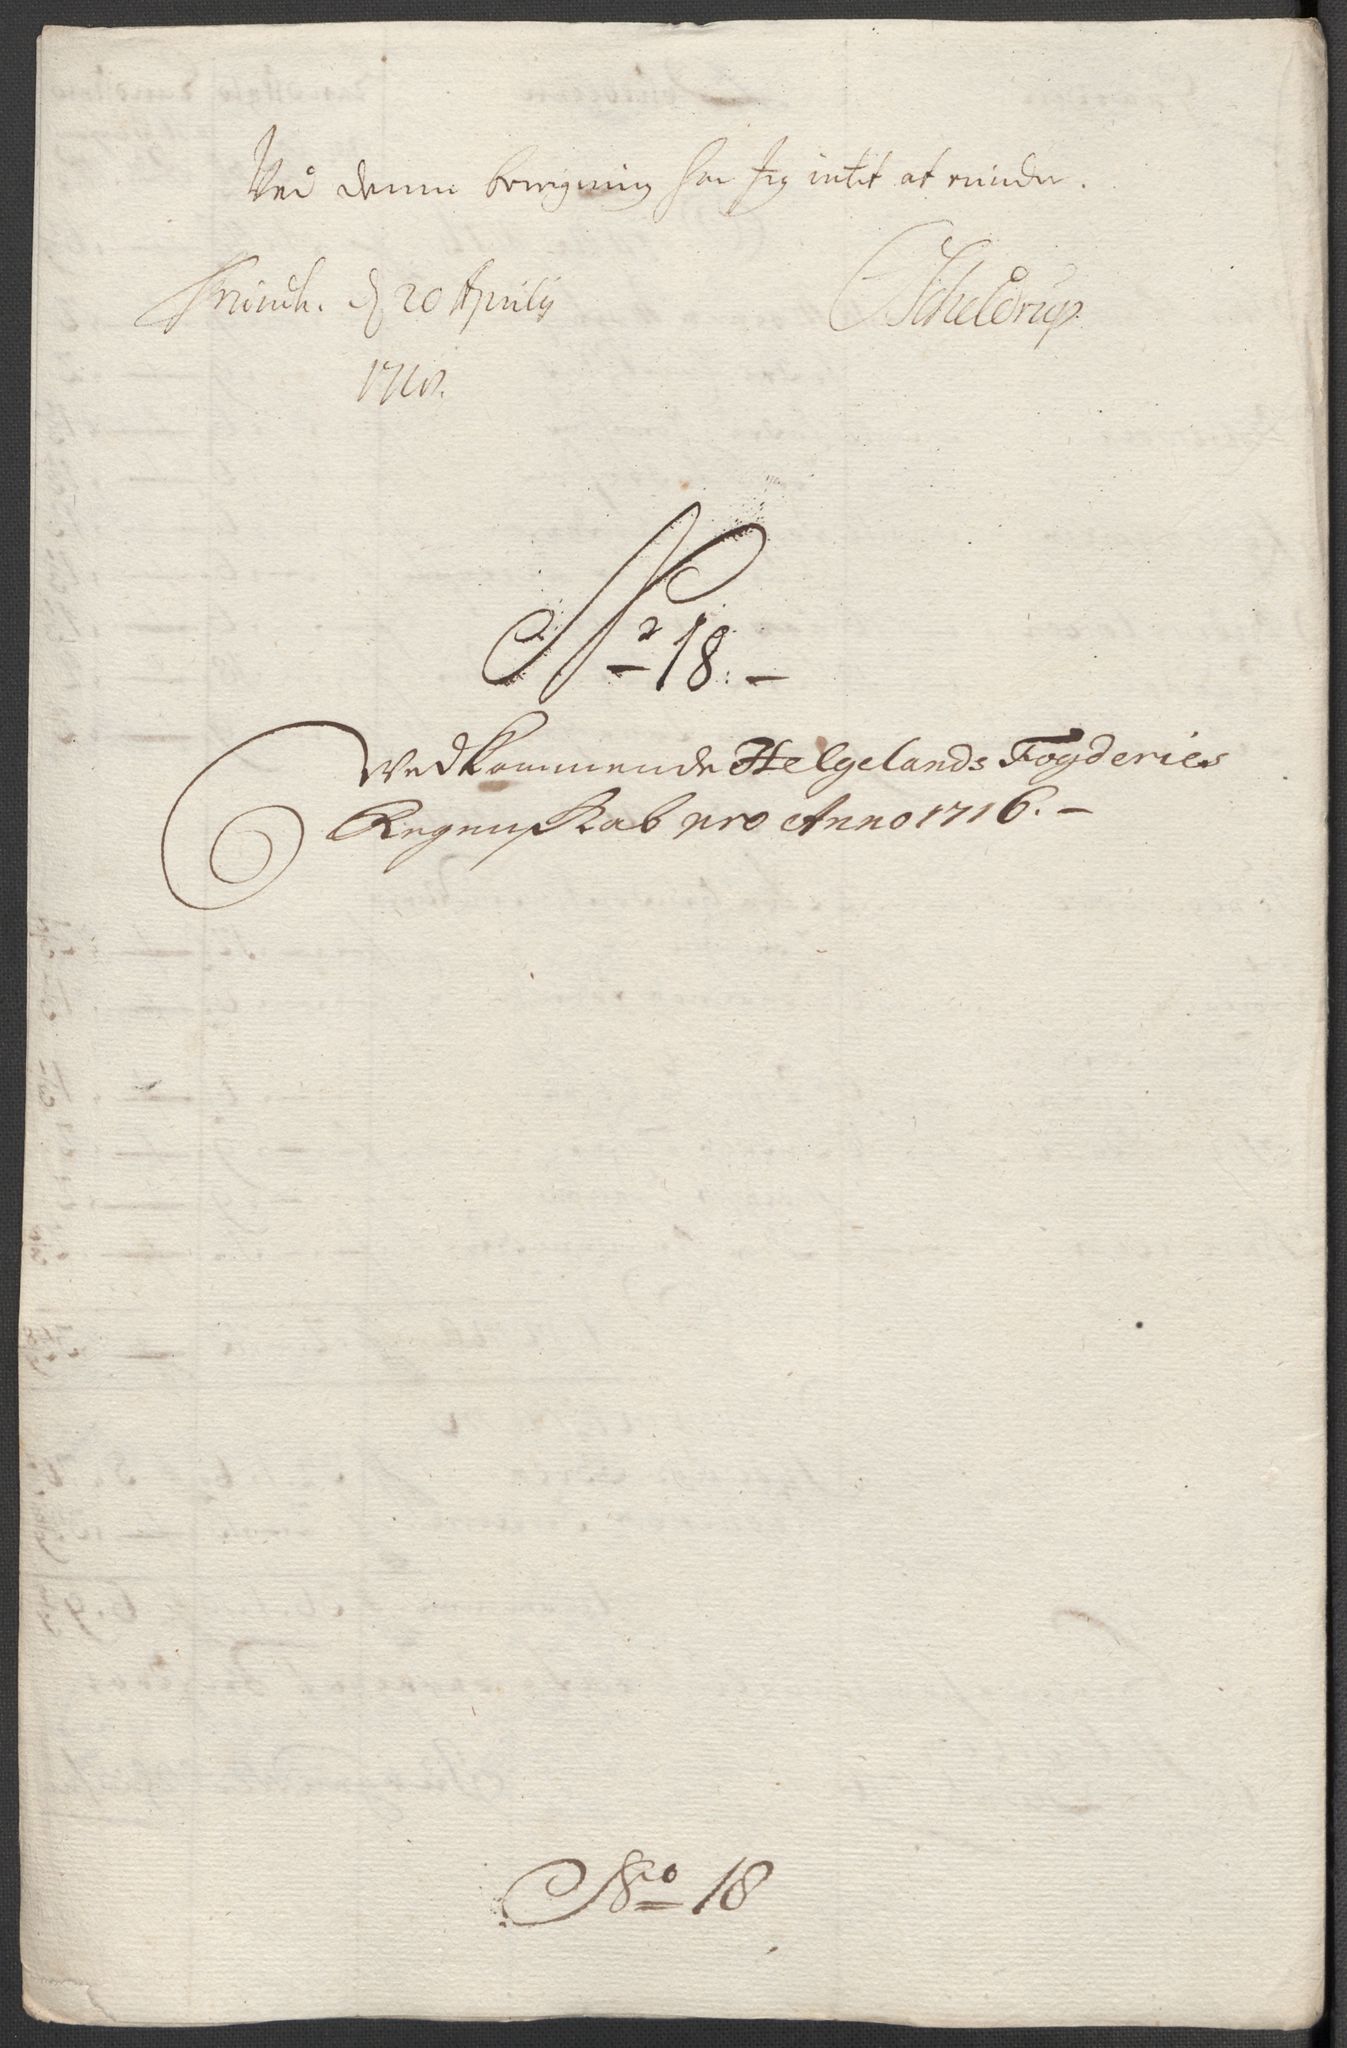 Ved denne beregning har jeg intet at erindre.
Trundh. d 20 Aprilij
CScheldrup
1718.
No 18.
Vedkommende Helgelands Fogderies
Regenskab pro Anno 1716.
No 18